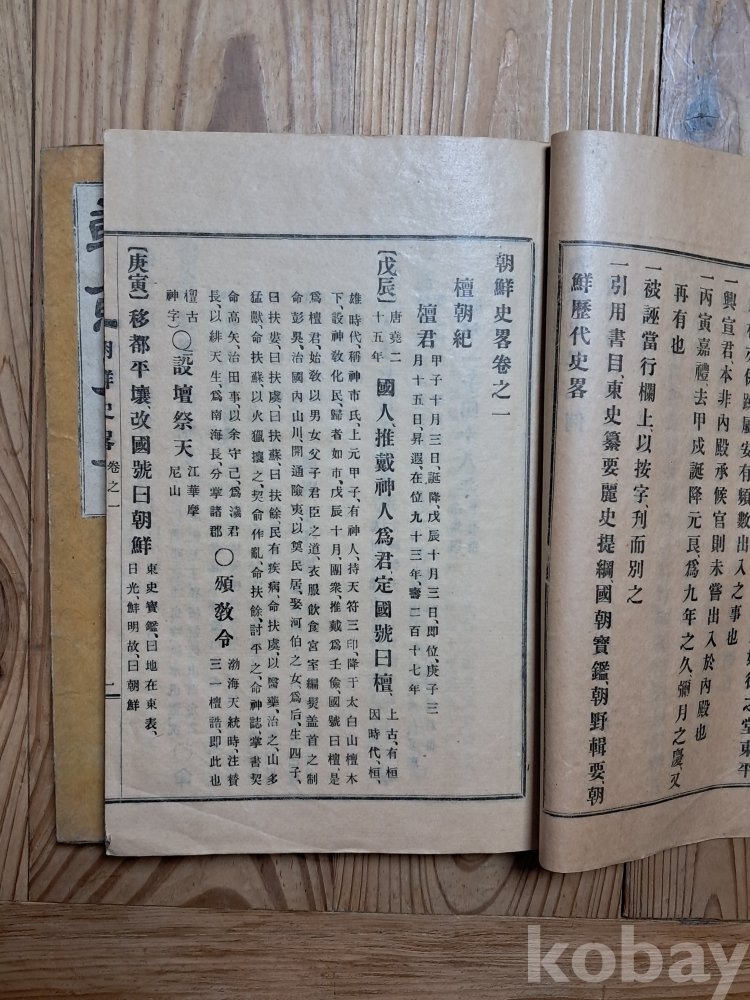 一興宣君、本非內殿承候官則未嘗出入於內殿也
一丙寅嘉禮、去甲戌誕降元良、爲九年之久、彌月之慶、又
再有也
一被誣當行欄上、以按字、刋而別之
一引用書目、東史纂要、麗史提綱、國朝寶鑑、朝野輯要、朝
鮮歷代史畧 例
朝鮮史畧卷之一
檀朝紀
檀君 甲子十月三日、誕降、戊辰十月三日、即位、庚子三
月十五日、昇遐、在位九十三年、壽二百十七年、
【戊辰】唐堯二
十五年 國人、推戴神人、爲君定國號曰檀、上古、有桓
因時代、桓、
雄時代、稱神市氏、上元甲子、有神人、持天符三印、降于太白山檀木
下、設神敎化民、歸者如市、戊辰十月、團衆、推戴爲壬儉、國號曰檀、是
爲檀君、始敎以男女父子君臣之道、衣服飮食宮室編髮盖首之制
命彭吳、治國內山川、開通險夷、以奠民居、娶河伯之女、爲后、生四子、
曰扶婁、曰扶虞、曰扶蘇、曰扶餘、民有疾病、命扶虞、以醫藥、治之、山多
猛獸、命扶蘇、以火獵攘之、契俞作亂、命扶餘、討平之、命神誌、掌書契
命高矢、治田事、以余守己、爲濊君
長、以緋天生、爲南海長、分掌諸郡 〇頒敎令 渤海天統時、注賛
三一檀誥、即此也
檀古
神字 〇設壇祭天 江華摩
尼山
【庚寅】移都平壤改國號曰朝鮮 東史寶鑑、曰地在東表、
日光、鮮明故、曰朝鮮
一
朝鮮史畧 卷之一
kobay